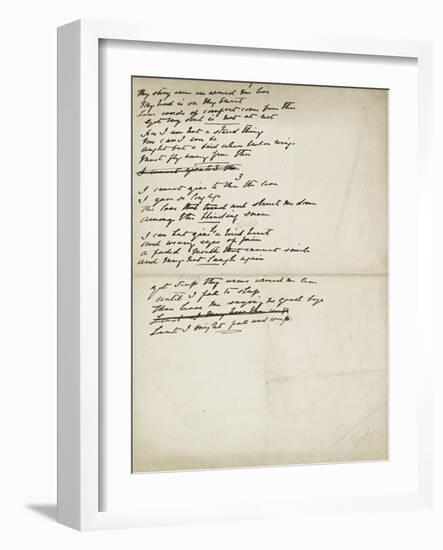 Thy strong arms are around me love
My head is on thy breast
Low words of comfort come from thee
Yet my soul is not at rest
For I am but a
Nor can I ever be
Aught but a bird whose broken wing
Must fly away from thee
I cannot
3
I cannot give to thee the love
I gave so long ago
The love that turned and struck me down
Among the blinding snow
4
I can but give a tired heart
And weary eyes of pain
A faded mouth that cannot smile
And may not laugh again
Yet keep thy arms around me love
Until I fall to sleep
Then leave me saying no good bye
Least I might fall and weep